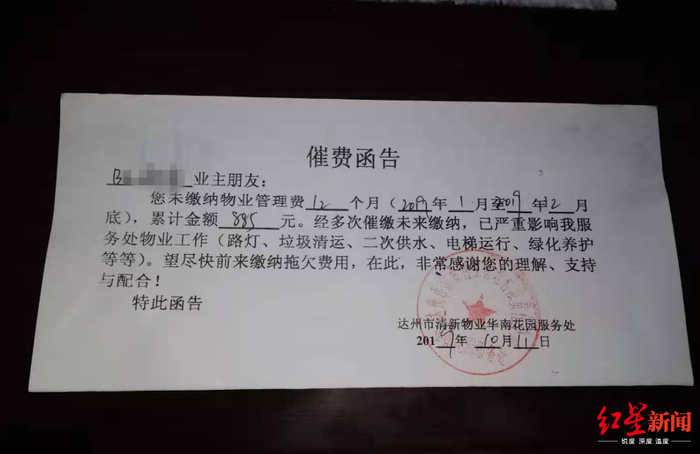 催费函告
B 业主朋友：
您未缴纳物业管理费12个月（2019年1月至2019年12月
底），累计金额 885 元。经多次催缴未来缴纳，已严重影响我服
务处物业工作（路灯、垃圾清运、二次供水、电梯运行、绿化养护
等等）。望尽快前来缴纳拖欠费用，在此，非常感谢您的理解、支持
与配合！
特此函告
达州市清新物业华南花园服务处
2019年10月11日
红星新闻
锐度 深度 温度